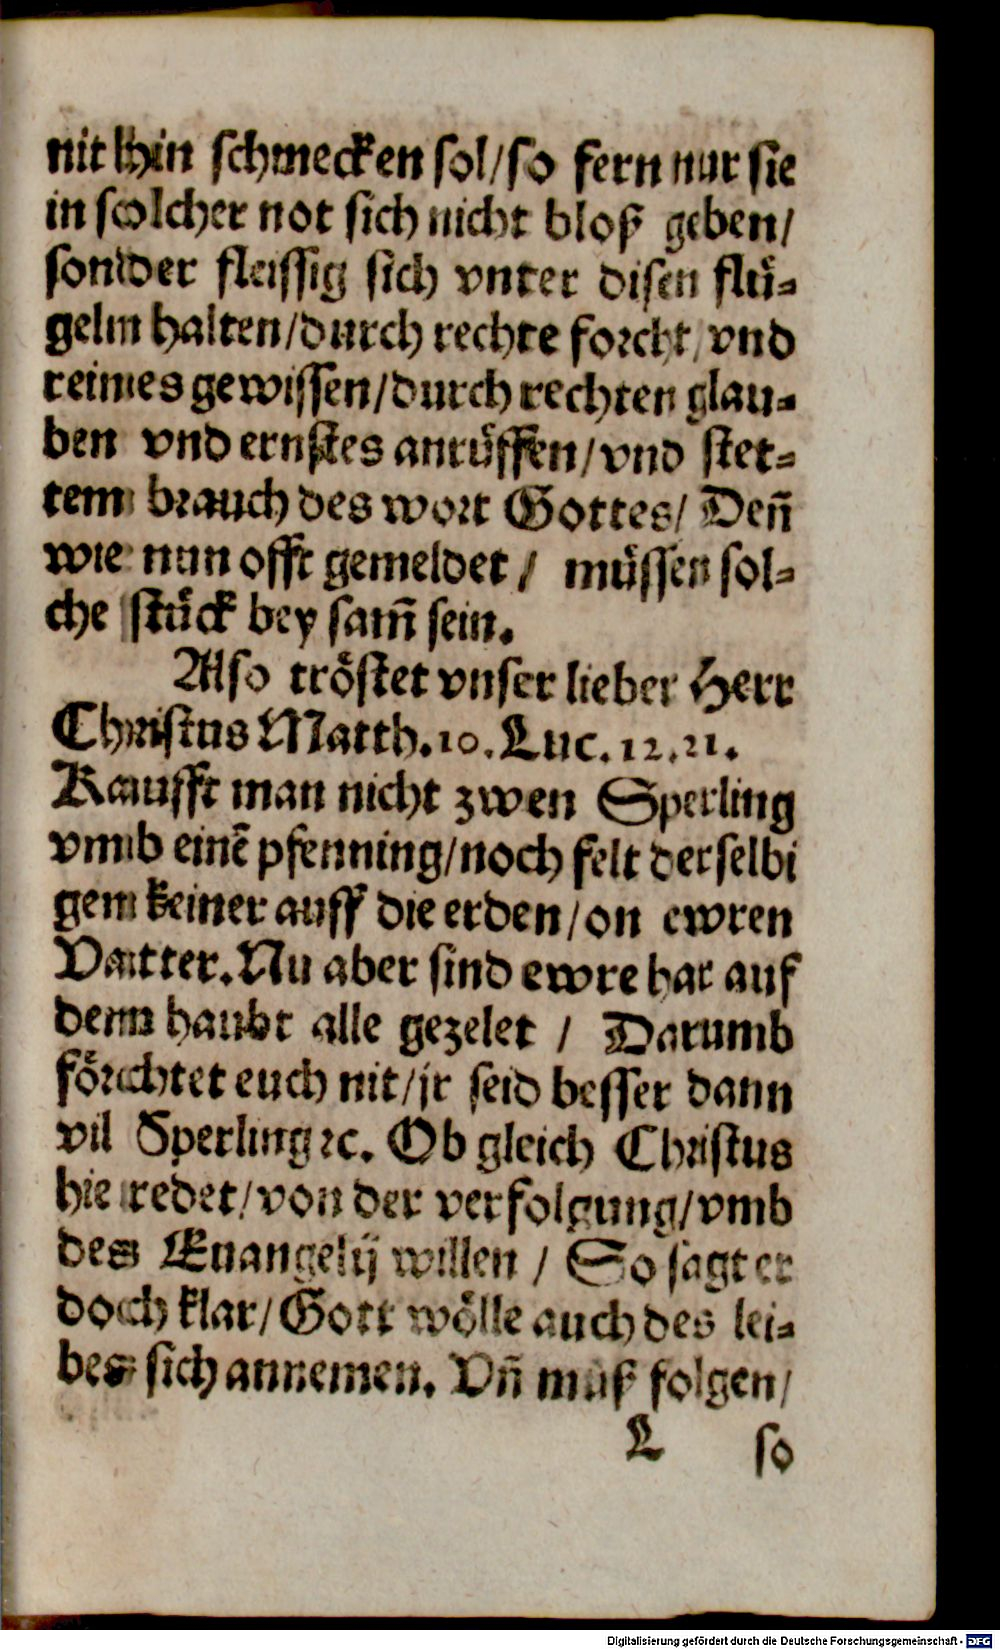 nit hin schmecken sol/so fern nur sie
in solcher not sich nicht bloß geben/
sonder fleissig sich vnter disen flü-
geln halten/durch rechte forcht/vnd
reines gewissen/durch rechten glau-
ben vnd ernstes anrüffen/vnd stet-
tem brauch des wort Gottes/ Deñ
wie nun offt gemeldet / müssen sol-
che stück bey sam̃ sein.
Also tröstet vnser lieber Herr
Christus Matth.10. Luc. 12.21.
Kaufft man nicht zwen Sperling
vmb einẽ pfenning/noch felt derselbi
gen keiner auff die erden/on ewren
Vatter. Nu aber sind ewre har auf
dem haubt alle gezelet / Darumb
förchtet euch nit/jr seid besser dann
vil Sperling ꝛc. Ob gleich Christus
hie redet/von der verfolgung/vmb
des Euangelij willen / So sagt er
doch klar/Gott wölle auch des lei-
bes sich annemen. Vñ muß folgen/
L so
Digitalisierung gefördert durch die Deutsche Forschungsgemeinschaft - DFG